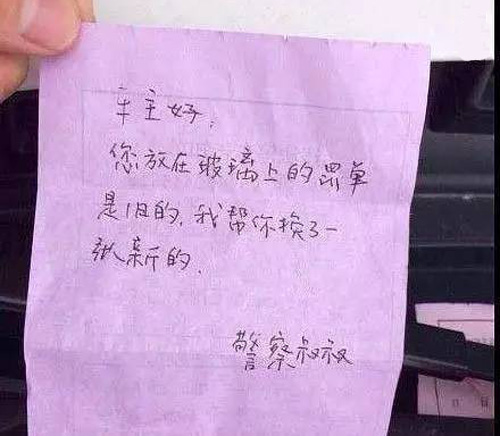 车主好,
您放在玻璃上的罚单
是旧的,我帮你换了一
张新的.
警察叔叔